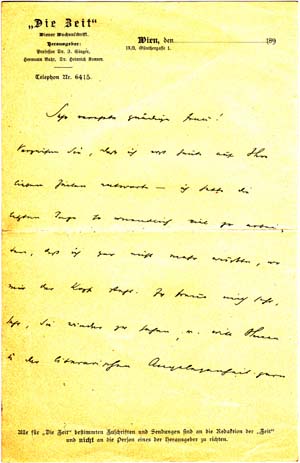 „Die Zeit"
Wiener Wochenschrift.
Herausgeber:
Professor Dr. I. Singer,
Hermann Bahr, Dr. Heinrich Kanner.
Telephon Nr. 6415.
Wien, den 189
IX/3, Günthergasse 1.
Sehr verehrte gnädige Frau!
Verzeihen Sie, daß ich erst heute auf Ihre
lieben Zeilen antworte – ich hatte die
letzten Tage so unendlich viel zu arbei-
ten, daß ich gar nicht mehr wußte, wo
mir der Kopf steht. Ich freue mich sehr,
sehr, Sie wieder zu sehen, u. will Ihnen
in der literarischen Angelegenheit gern
Alle für „Die Zeit" bestimmten Zuschriften und Sendungen sind an die Redaktion der „Zeit"
und nicht an die Person eines der Herausgeber zu richten.